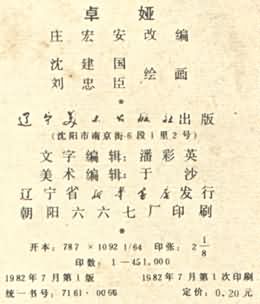 卓娅
庄宏安改编
沈建国
刘忠臣 绘画
辽宁美术出版社出版
(沈阳市南京街6段1里2号)
文字编辑:潘彩英
美术编辑:于沙
辽宁省新华书店发行
朝阳六六七厂印刷
开本:787×1092 1/64 印张:2 1/8
印数:1—451,000
1982年7月第1版 1982年7月第1次印刷
统一书号:7161·0066 定价:0.20元